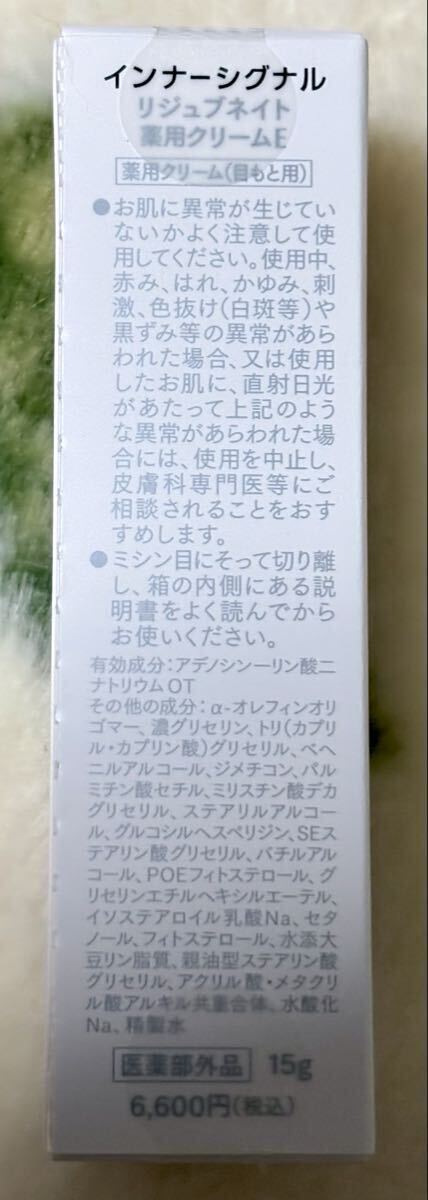 インナーシグナル
リジュブネイト
薬用クリームE
薬用クリーム(目もと用)
●お肌に異常が生じてい
ないかよく注意して使
用してください。使用中、
赤み、はれ、かゆみ、刺
激、色抜け(白斑等)や
黒ずみ等の異常があら
われた場合、又は使用
したお肌に、直射日光
があたって上記のよう
な異常があらわれた場
合には、使用を中止し、
皮膚科専門医等にご
相談されることをおす
すめします。
●ミシン目にそって切り離
し、箱の内側にある説
明書をよく読んでから
お使いください。
有効成分:アデノシン一リン酸二
ナトリウムOT
その他の成分:α-オレフィンオリ
ゴマー、濃グリセリン、トリ(カプリ
ル・カプリン酸)グリセリル、ベヘ
ニルアルコール、ジメチコン、パル
ミチン酸セチル、ミリスチン酸デカ
グリセリル、ステアリルアルコー
ル、グルコシルヘスペリジン、SEス
テアリン酸グリセリル、バチルアル
コール、POEフィトステロール、グ
リセリンエチルヘキシルエーテル、
イソステアロイル乳酸Na、セタ
ノール、フィトステロール、水添大
豆リン脂質、親油型ステアリン酸
グリセリル、アクリル酸・メタクリ
ル酸アルキル共重合体、水酸化
Na、精製水
医薬部外品 15g
6,600円(税込)